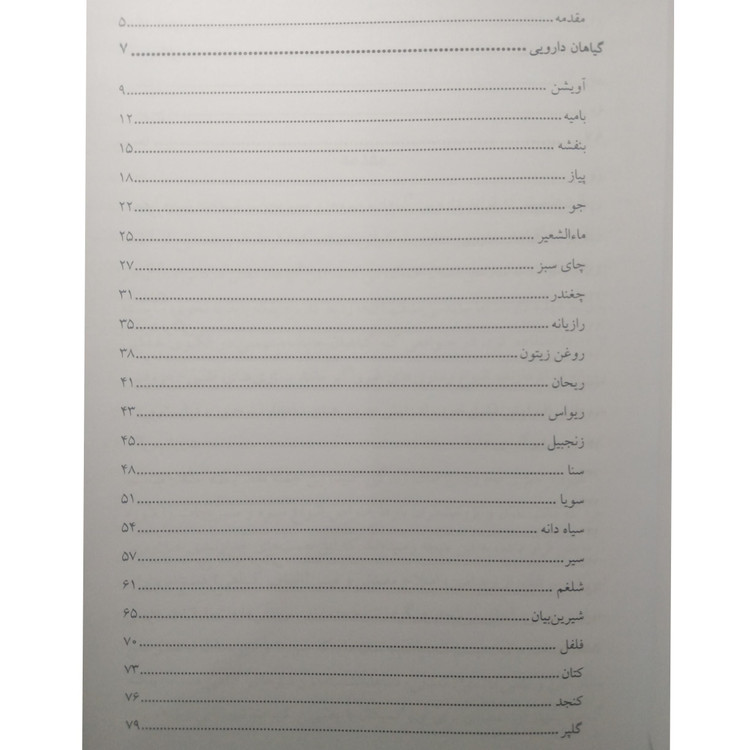 مقدمه ........ ۵
گیاهان دارویی ........ ۷
آویشن ........ ۹
بامیه ........ ۱۲
بنفشه ........ ۱۵
پیاز ........ ۱۸
جو ........ ۲۲
ماءالشعیر ........ ۲۵
چای سبز ........ ۲۷
چغندر ........ ۳۱
رازیانه ........ ۳۵
روغن زیتون ........ ۳۸
ریحان ........ ۴۱
ریواس ........ ۴۳
زنجبیل ........ ۴۵
سنا ........ ۴۸
سویا ........ ۵۱
سیاه دانه ........ ۵۴
سیر ........ ۵۷
شلغم ........ ۶۱
شیرین‌بیان ........ ۶۵
فلفل ........ ۷۰
کتان ........ ۷۳
کنجد ........ ۷۶
گلپر ........ ۷۹